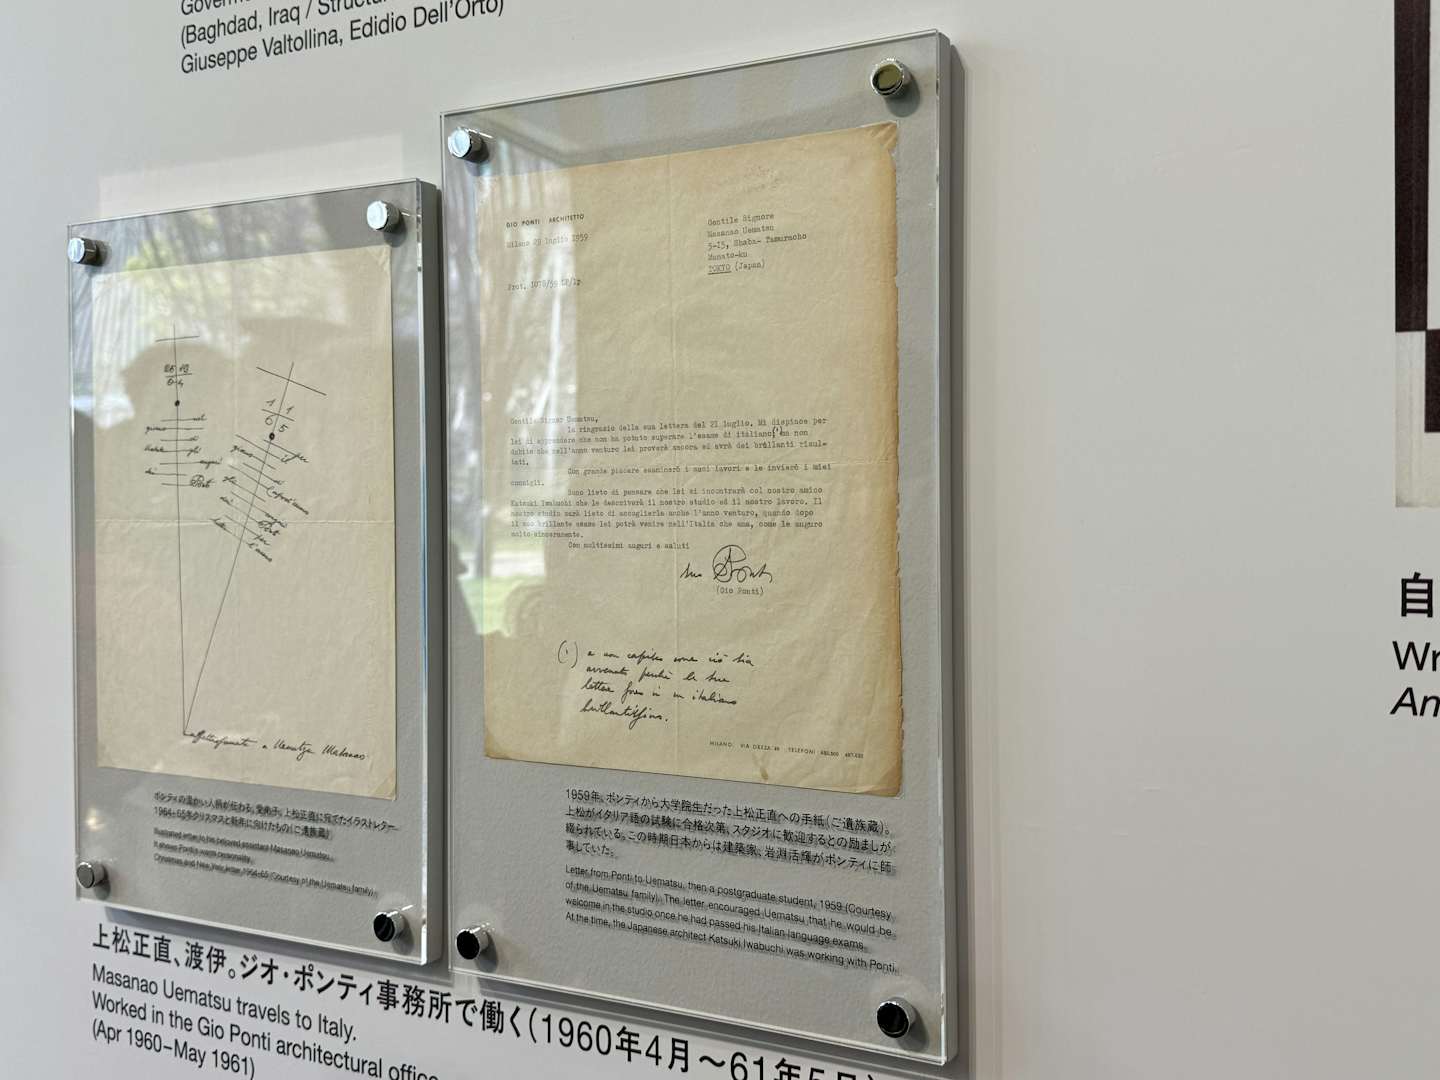 (Baghdad, Iraq / Structural
Giuseppe Valtollina, Edidio Dell'Orto)
GIO PONTI ARCHITETTO
Milano 29 luglio 1959
Prot. 1078/59 GP/lp
Gentile Signore
Masanao Uematsu
5-15, Shaba- Tamuracho
Minato-ku
TOKYO (Japan)
Gentile Signor Uematsu,
la ringrazio della sua lettera del 21 luglio. Mi dispiace per
lei di apprendere che non ha potuto superare l'esame di italiano(1)ma non
dubito che nell'anno venturo lei proverà ancora ed avrà dei brillanti risul-
tati.
Con grande piacere esaminerò i suoi lavori e le invierò i miei
consigli.
Sono lieto di pensare che lei si incontrerà col nostro amico
Katsuki Iwabuchi che le descriverà il nostro studio ed il nostro lavoro. Il
nostro studio sarà lieto di accoglierla anche l'anno venturo, quando dopo
il suo brillante esame lei potrà venire nell'Italia che ama, come le auguro
molto sinceramente.
Con moltissimi auguri e saluti
suo Gio Ponti
(Gio Ponti)
(1) e non capisco come ciò sia
avvenuto perché la sua
lettera è in italiano
brillantissimo.
MILANO VIA DEZZA 49 TELEFONI
affettuosamente a Uematsu Masanao
ポンティの温かい人柄が伝わる、愛弟子、上松正直に宛てたイラストレター
1964-65年クリスマスと新年に向けたもの(ご遺族蔵)
Illustrated letter to his beloved assistant Masanao Uematsu.
It shows Ponti's warm personality.
Christmas and New Year letter, 1964-65 (Courtesy of the Uematsu family)
1959年、ポンティから大学院生だった上松正直への手紙(ご遺族蔵)。
上松がイタリア語の試験に合格次第、スタジオに歓迎するとの励ましが
綴られている。この時期日本からは建築家、岩淵活輝がポンティに師
事していた。
Letter from Ponti to Uematsu, then a postgraduate student, 1959 (Courtesy
of the Uematsu family). The letter encouraged Uematsu that he would be
welcome in the studio once he had passed his Italian language exams.
At the time, the Japanese architect Katsuki Iwabuchi was working with Ponti.
上松正直、渡伊。ジオ・ポンティ事務所で働く(1960年4月〜61年5月)
Masanao Uematsu travels to Italy.
Worked in the Gio Ponti architectural office
(Apr 1960–May 1961)
自
Wr
An